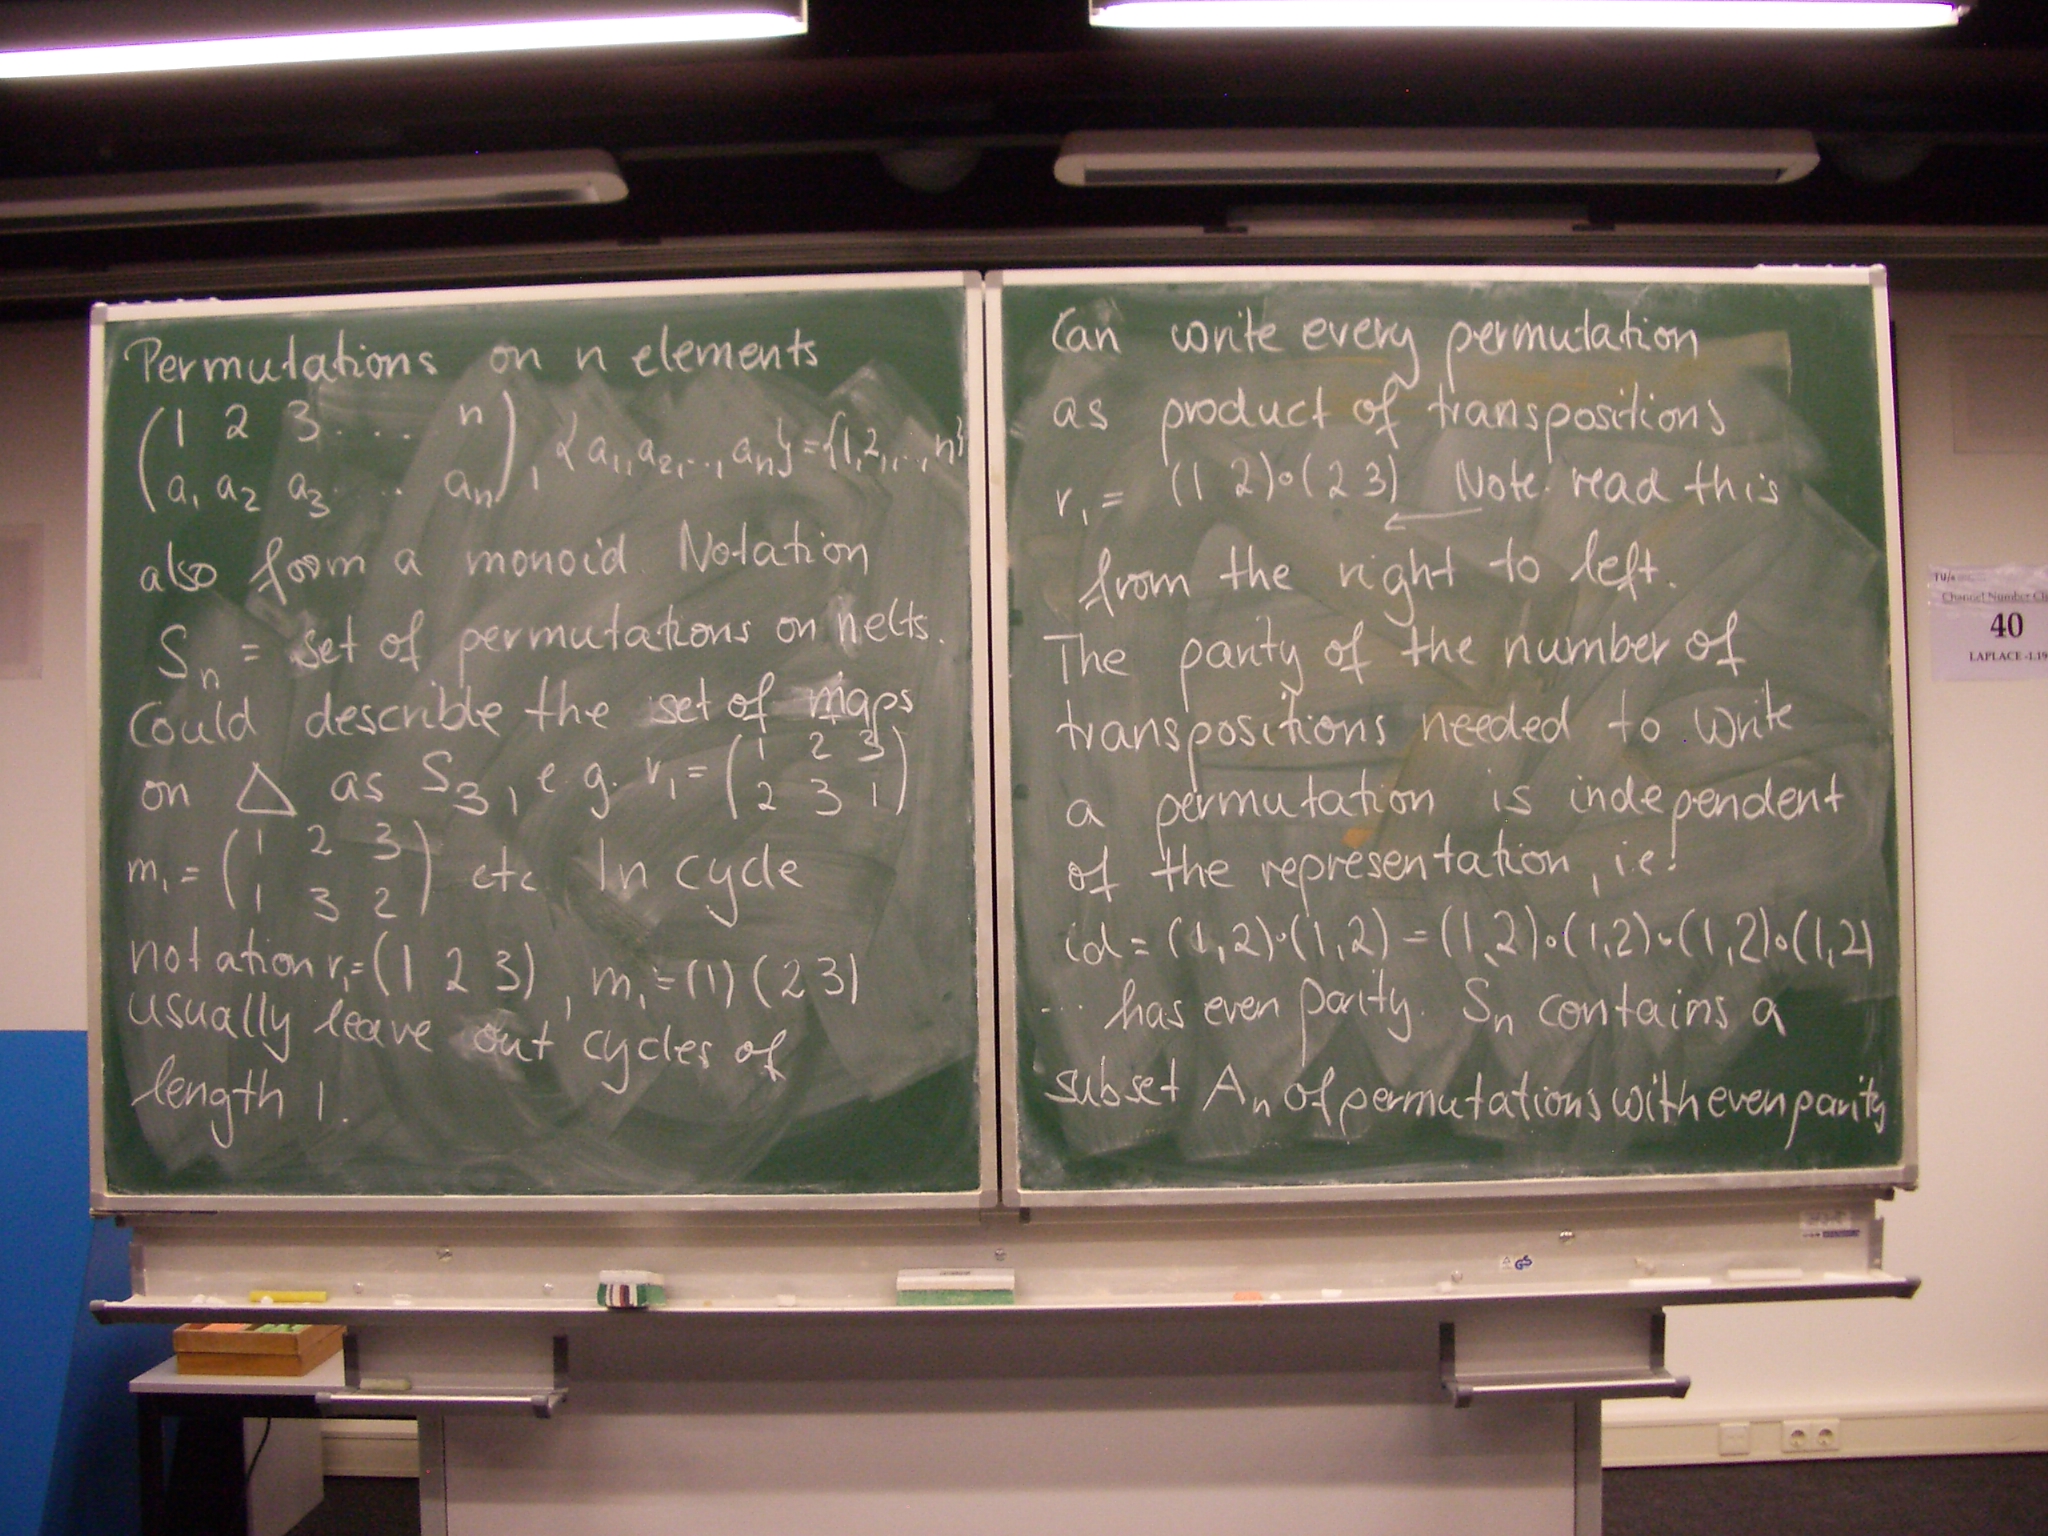 Permutations on n elements
(1 2 3 .... n
a₁ a₂ a₃ .... aₙ), {a₁,a₂,..,aₙ}={1,2,..,n}
also form a monoid. Notation
Sₙ = set of permutations on n elts.
Could describe the set of maps
on △ as S₃, e.g. r₁ = (1 2 3
2 3 1)
m₁ = (1 2 3
1 3 2) etc. In cycle
notation r₁=(1 2 3), m₁=(1)(23)
usually leave out cycles of
length 1.
Can write every permutation
as product of transpositions
r₁ = (1 2)∘(2 3) Note: read this
←
from the right to left.
The parity of the number of
transpositions needed to write
a permutation is independent
of the representation, i.e.
id = (1,2)∘(1,2) = (1,2)∘(1,2)∘(1,2)∘(1,2)
... has even parity. Sₙ contains a
subset Aₙ of permutations with even parity
TU/e
Channel Number
40
LAPLACE -1.19